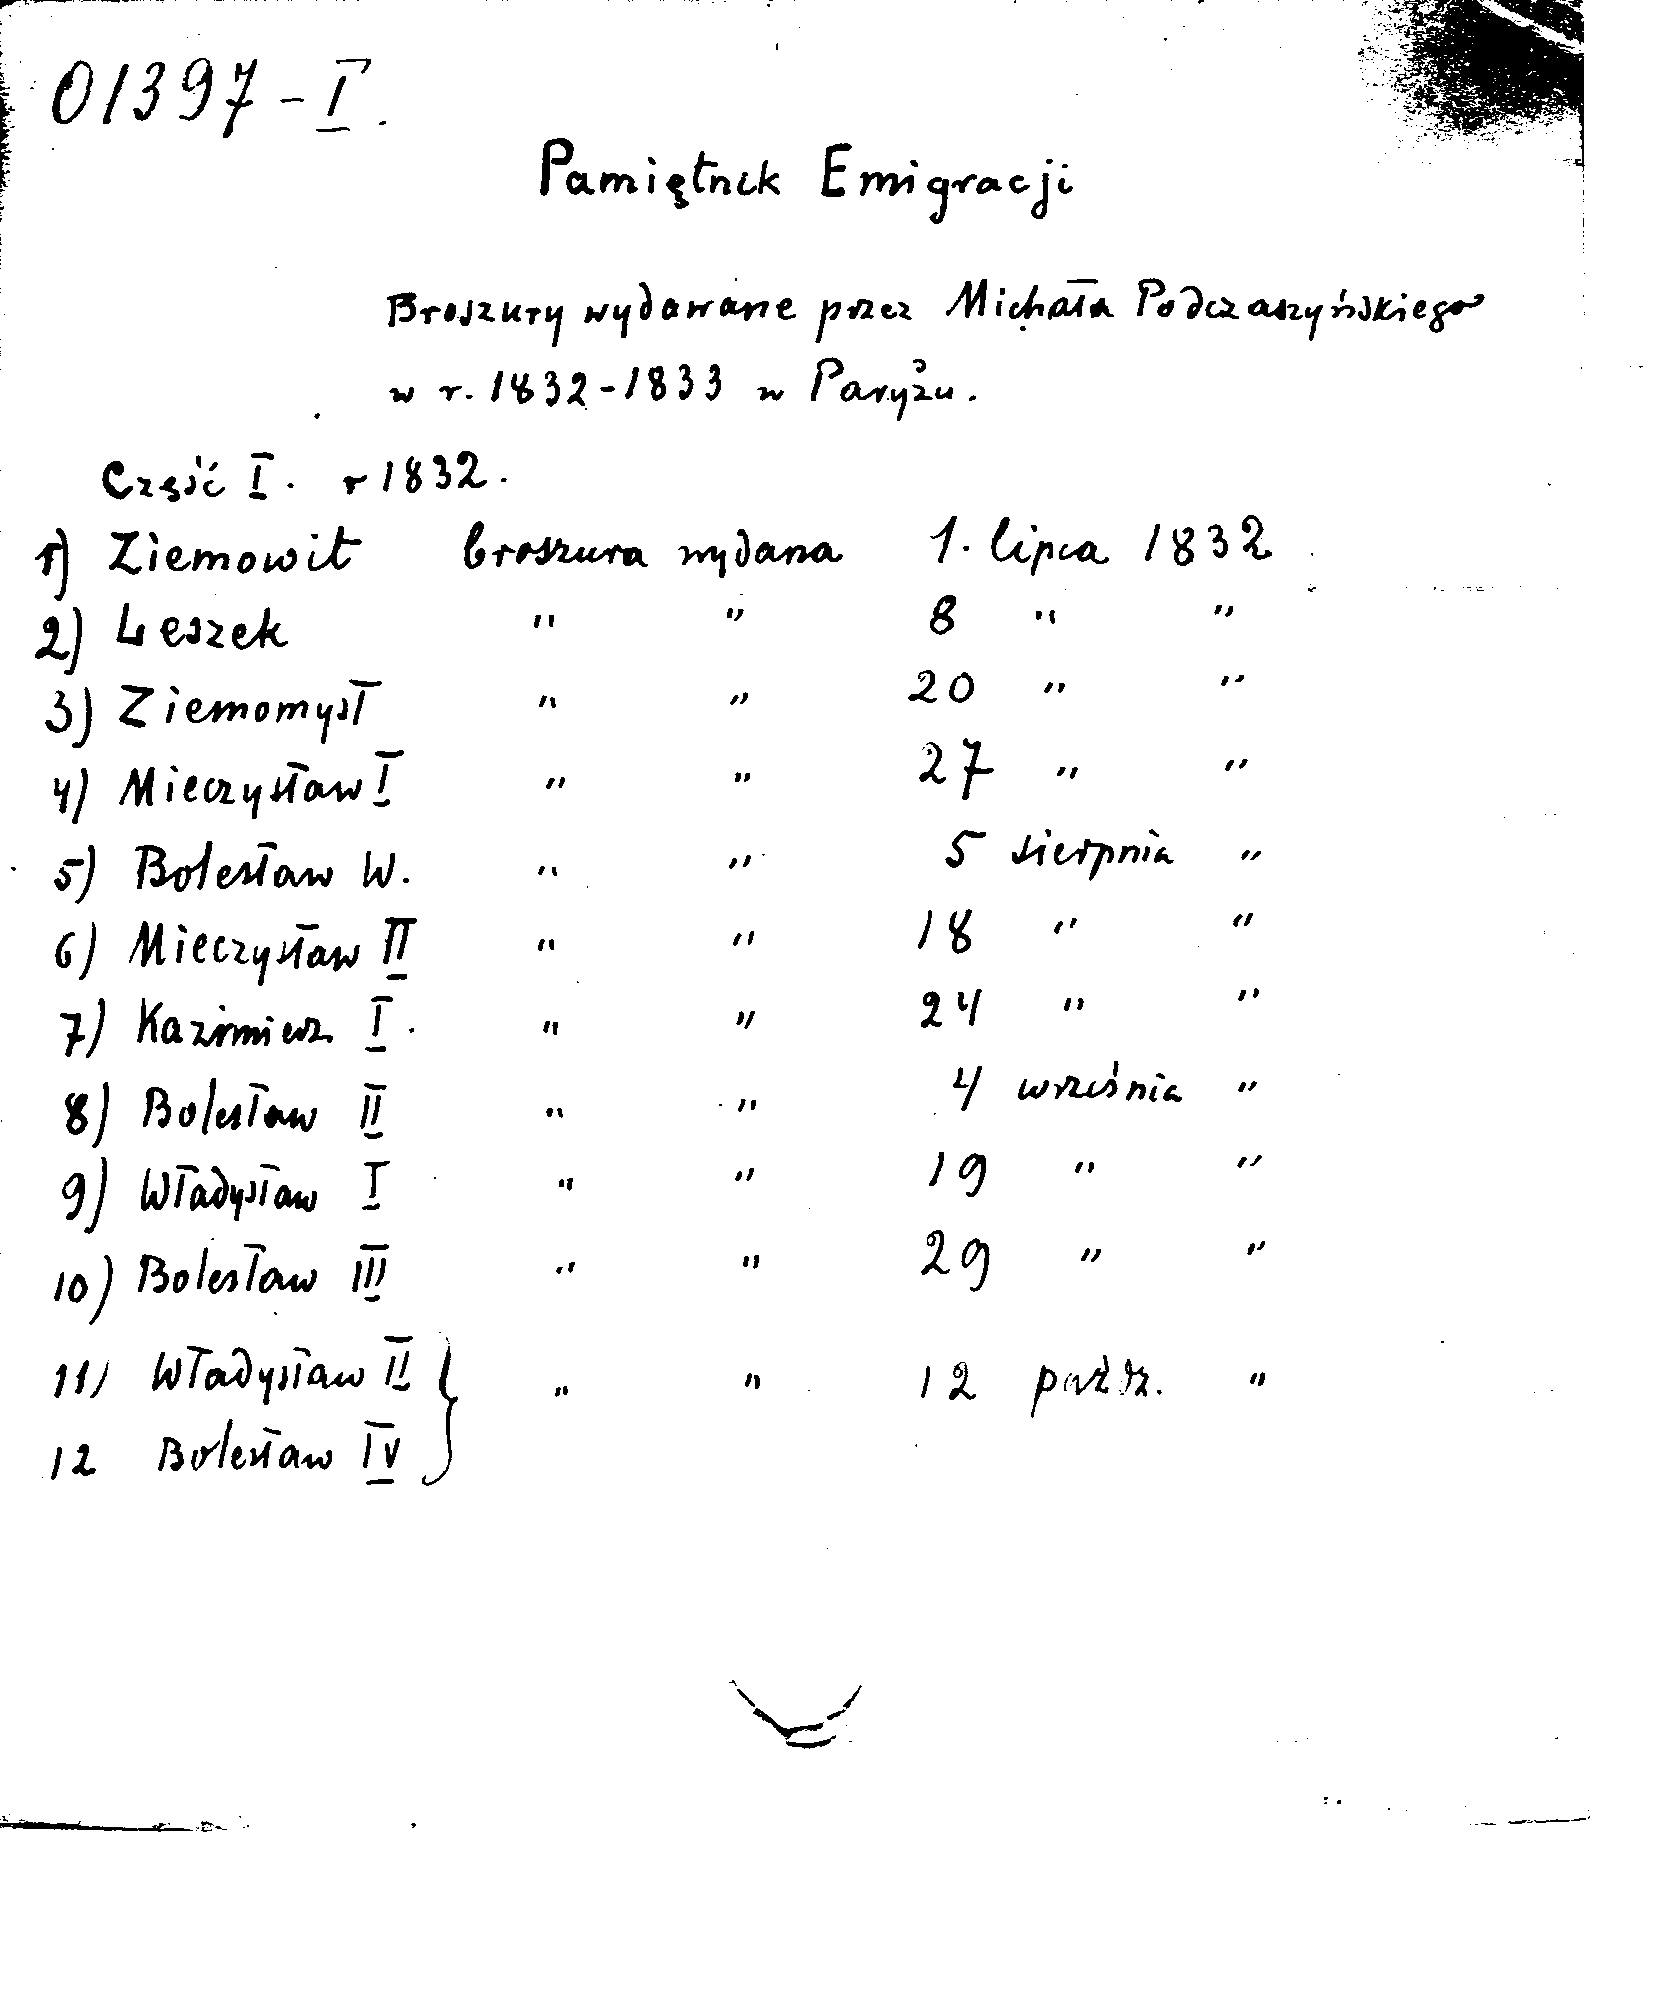 01397-I.
Pamiętnik Emigracji
Broszury wydawane przez Michała Podczaszyńskiego
w r. 1832-1833 w Paryżu.
Część I. r 1832.
1) Ziemowit broszura wydana 1. lipca 1832
2) Leszek " " 8 " "
3) Ziemomysł " " 20 " "
4) Mieczysław I " " 27 " "
5) Bolesław W. " " 5 sierpnia "
6) Mieczysław II " " 18 " "
7) Kazimierz I. " " 24 " "
8) Bolesław II " " 4 września "
9) Władysław I " " 19 " "
10) Bolesław III " " 29 " "
11) Władysław II } " " 12 paźdz. "
12 Bolesław IV